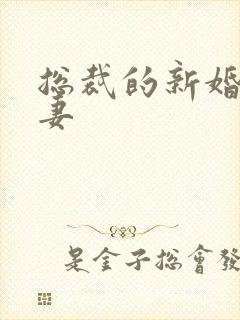 总裁的新婚
妻
是金子总會發